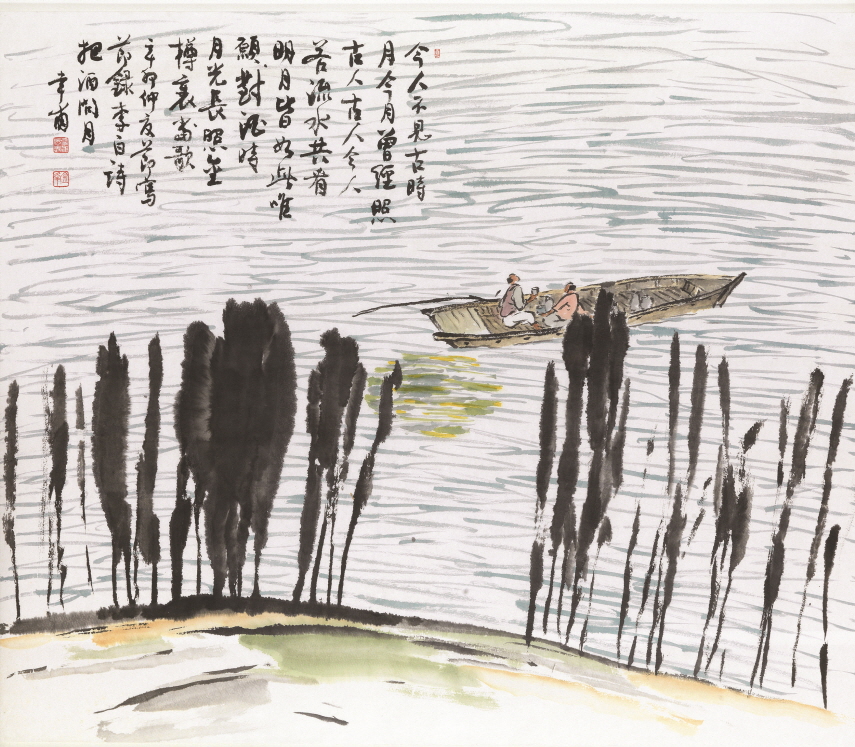 今人不見古時
月今月曾經照
古人古人今人
若流水共看
明月皆如此唯
願對酒時
月光長照金
樽裏當歌
辛卯仲夏節寫
節錄李白詩
把酒問月